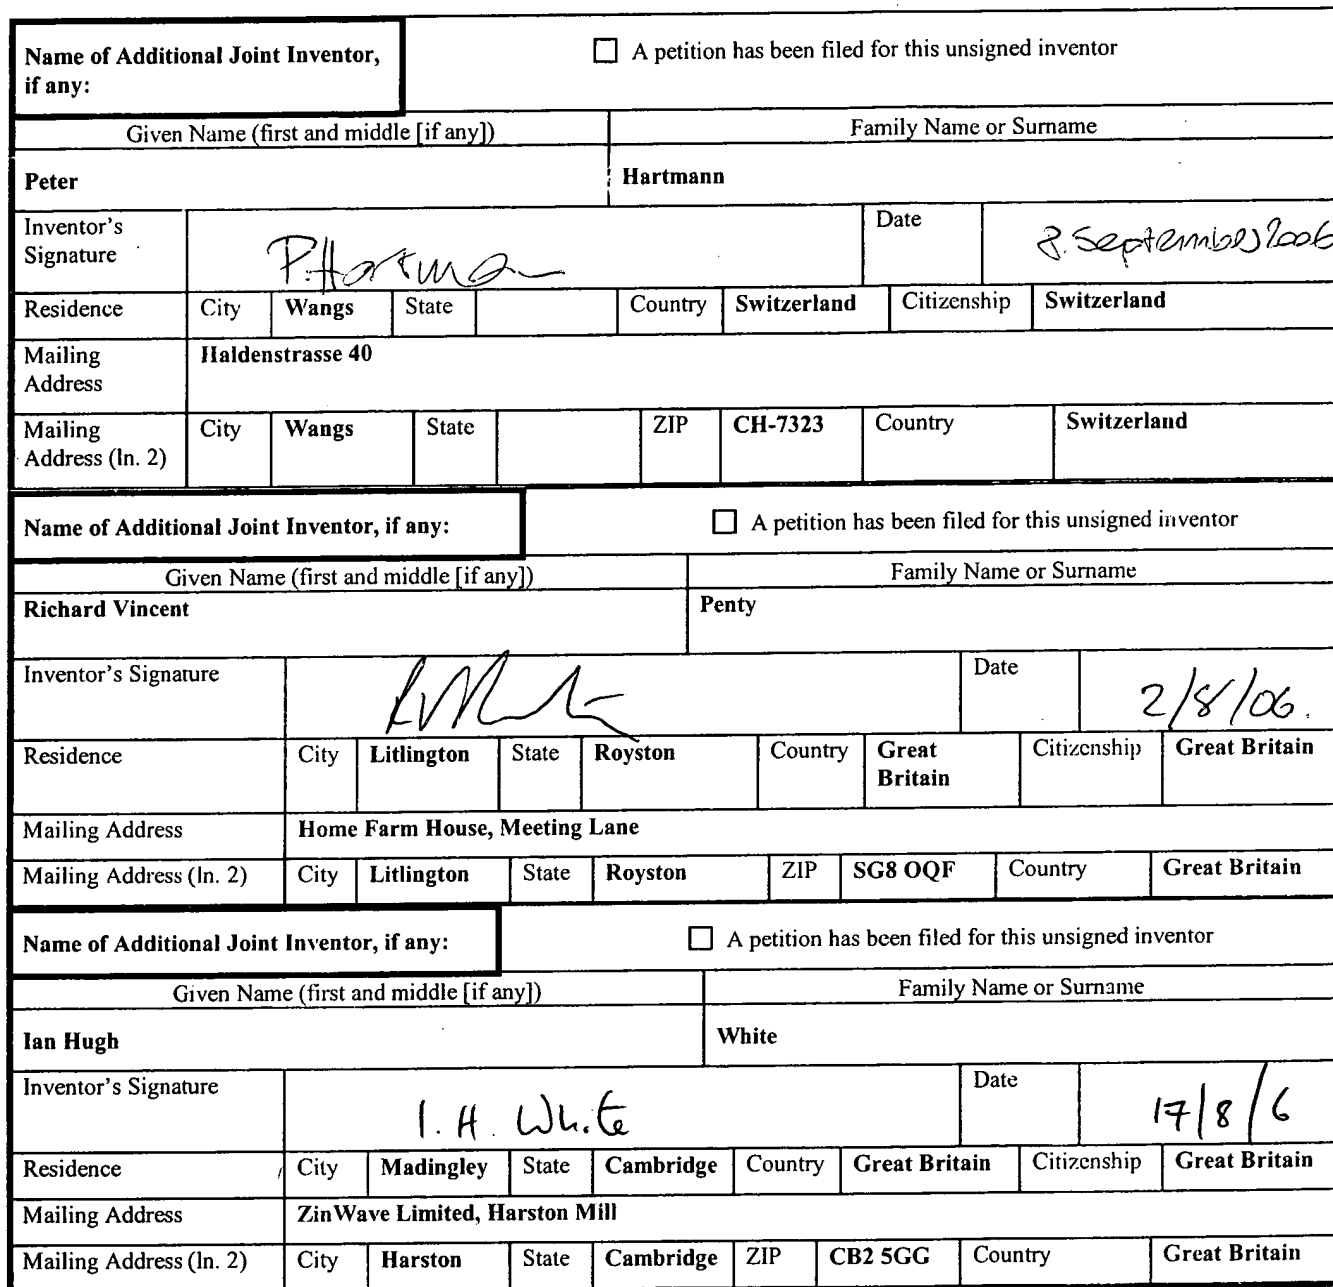 Name of Additional Joint Inventor, if any:
A petition has been filed for this unsigned inventor
Given Name (first and middle [if any]) Family Name or Surname
Peter Hartmann
Inventor's Signature P. Hartman Date 8. September 2006
Residence City Wangs State Country Switzerland Citizenship Switzerland
Mailing Address Haldenstrasse 40
Mailing Address (ln. 2) City Wangs State ZIP CH-7323 Country Switzerland
Name of Additional Joint Inventor, if any: A petition has been filed for this unsigned inventor
Given Name (first and middle [if any]) Family Name or Surname
Richard Vincent Penty
Inventor's Signature Date 2/8/06.
Residence City Litlington State Royston Country Great Britain Citizenship Great Britain
Mailing Address Home Farm House, Meeting Lane
Mailing Address (ln. 2) City Litlington State Royston ZIP SG8 OQF Country Great Britain
Name of Additional Joint Inventor, if any: A petition has been filed for this unsigned inventor
Given Name (first and middle [if any]) Family Name or Surname
Ian Hugh White
Inventor's Signature I. H. White Date 17/8/6
Residence City Madingley State Cambridge Country Great Britain Citizenship Great Britain
Mailing Address ZinWave Limited, Harston Mill
Mailing Address (ln. 2) City Harston State Cambridge ZIP CB2 5GG Country Great Britain